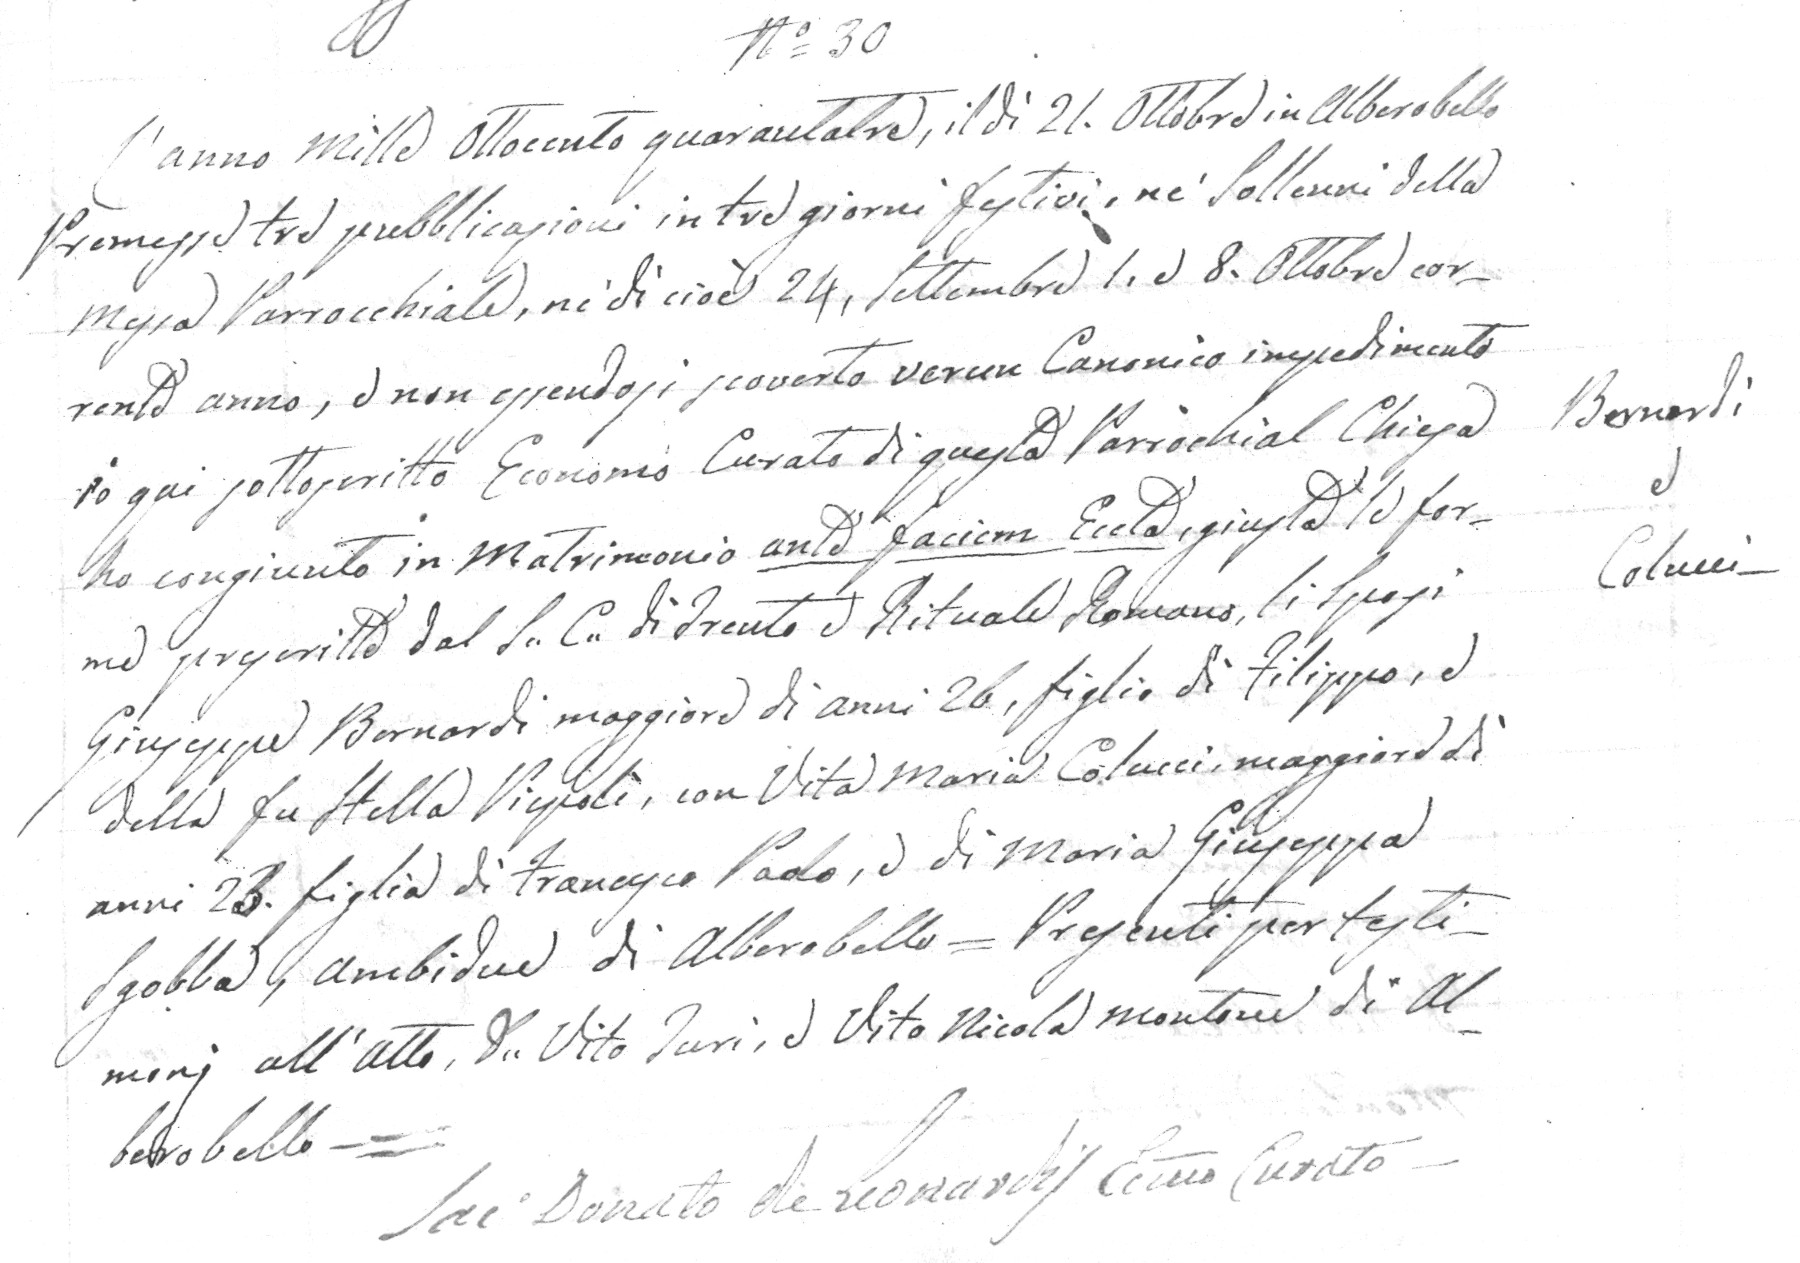 N.° 30
L'anno Mille Ottocento quarantatre, il dì 21. Ottobre in Alberobello
Premesse tre pubblicazioni in tre giorni festivi, ne' Sollenni della
Messa Parrocchiale, ne' dì cioè 24, Settembre 1. e 8. Ottobre cor-
rente anno, e non essendosi scoverto verun Canonico impedimento
io qui sottoscritto Economo Curato di questa Parrochial Chiesa
ho congiunto in Matrimonio ante faciem Eccle, giusta le for-
me prescritte dal S. C. di Trento e Rituale Romano, li Sposi
Giuseppe Bernardi maggiore di anni 26, figlio di Filippo, e
della fu Stella Pispoli, con Vita Maria Colucci, maggiore di
anni 23. figlia di Francesco Paolo, e di Maria Giuseppa
Sgobba, ambidue di Alberobello = Presenti per testi-
monj all'atto, D. Vito Turi, e Vito Nicola Montone di Al-
berobello =
Sac. Donato de Leonardis Ecmo Curato
Bernardi
e
Colucci